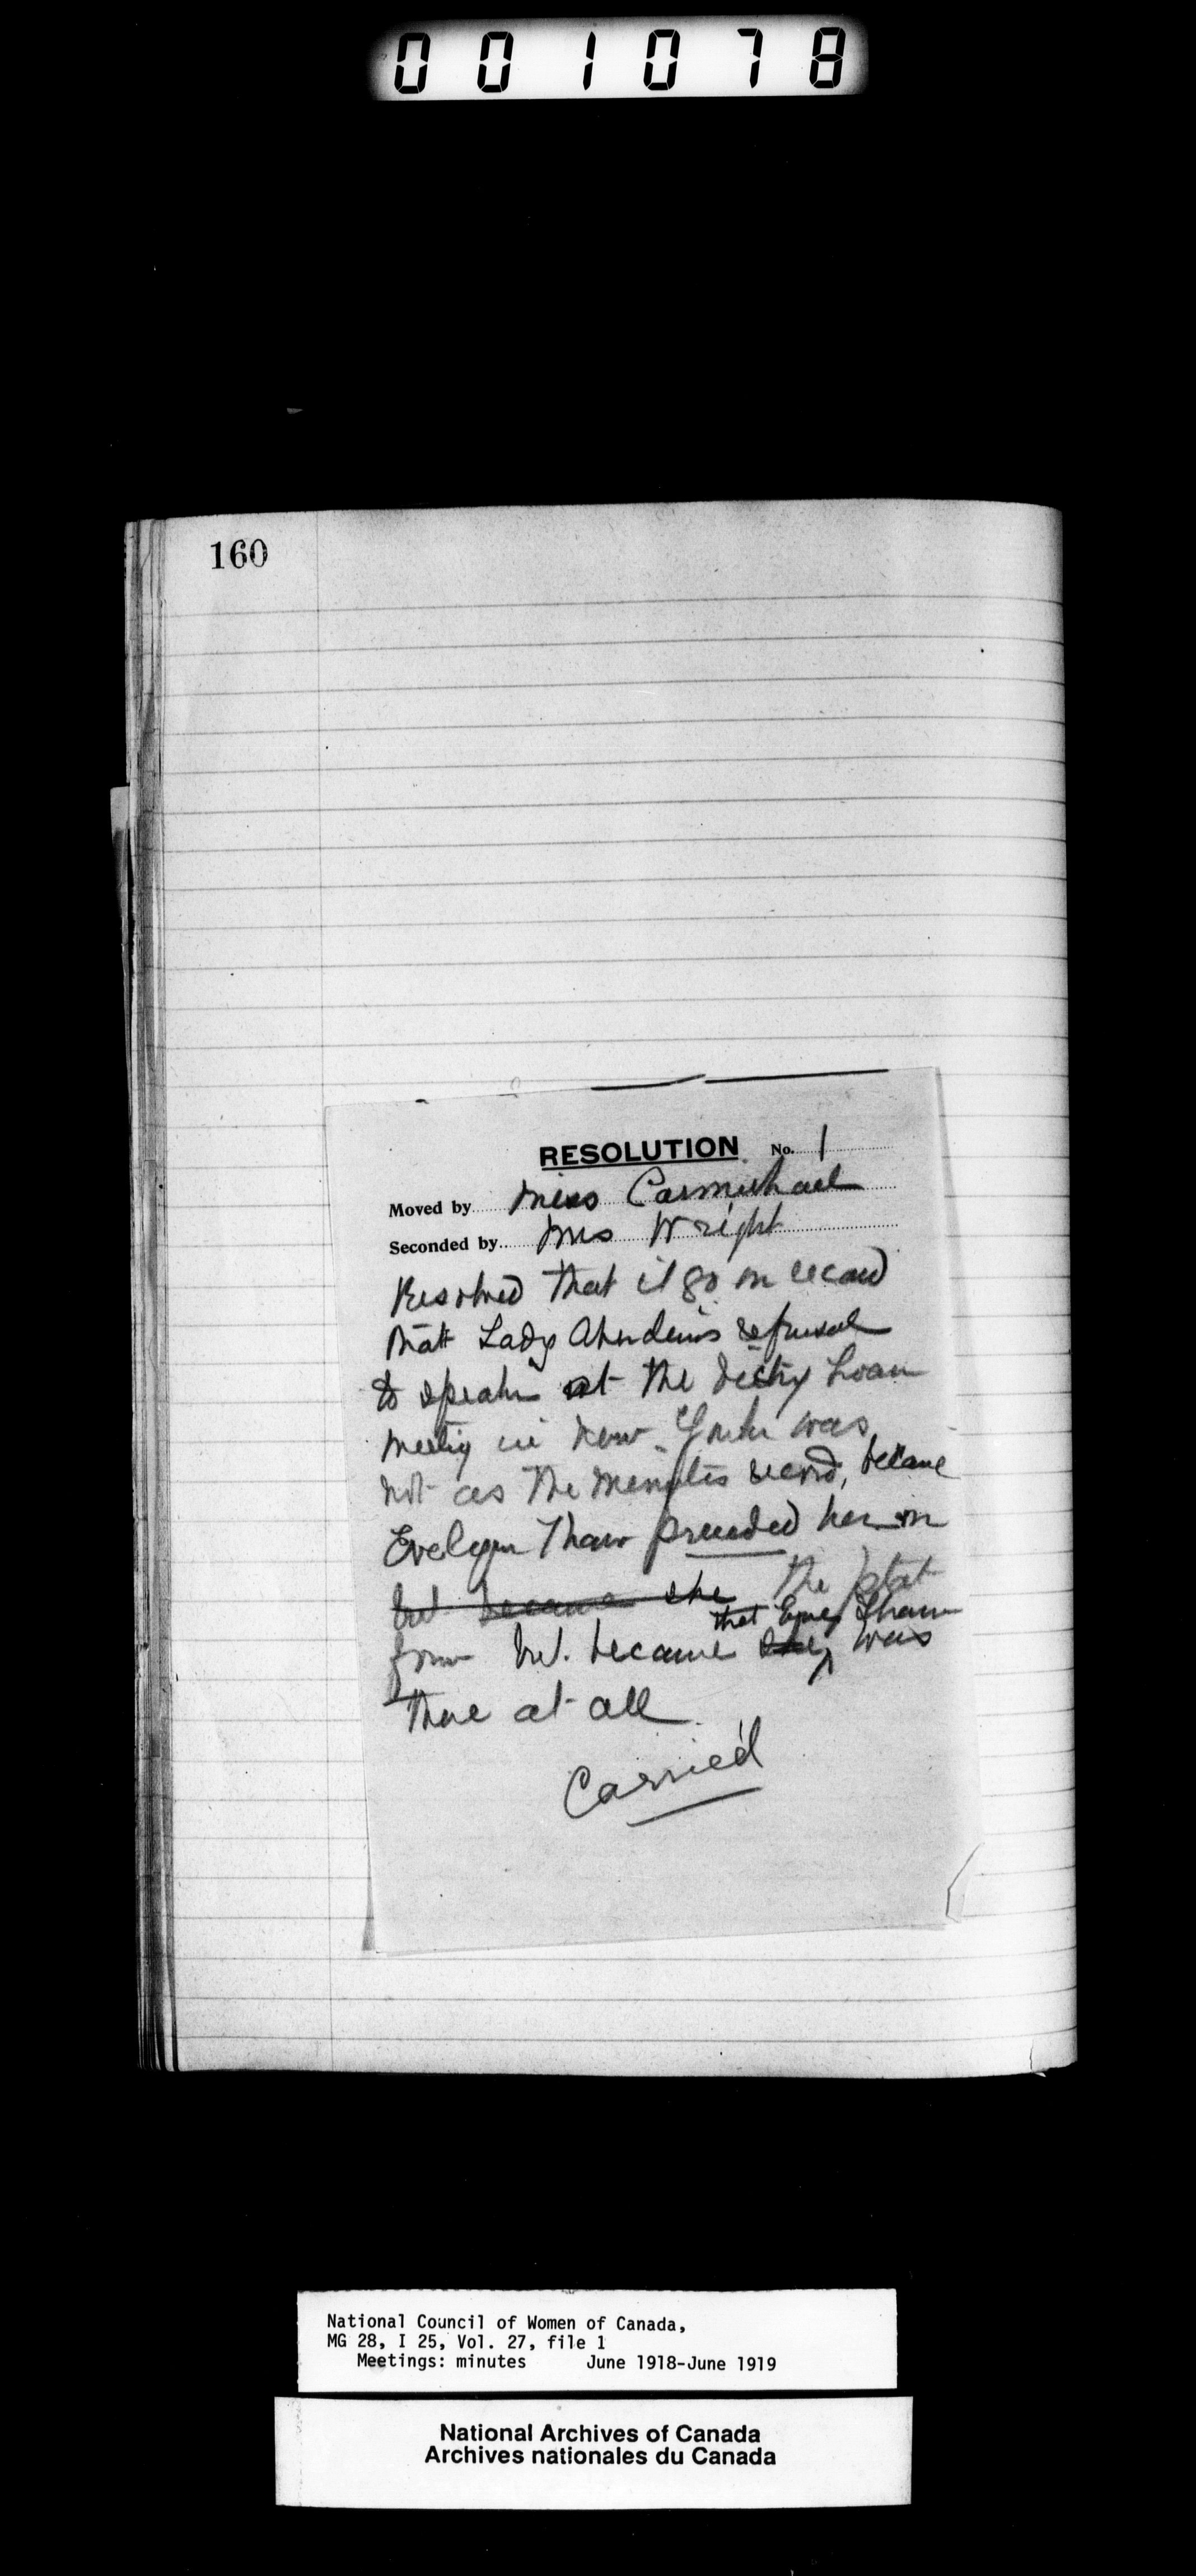 001078
160
RESOLUTION No. 1
Moved by Miss Carmichael
Seconded by Mrs Wright
Resolved that it go on record
that Lady Aberdeen's refusal
to speak at the Victry Loan
meetig in New York was
not as the minutes record, because
Evelyn Thaw preceded her on
but because she the plat
that Thaw
form but because she was
there at all
Carried
National Council of Women of Canada,
MG 28, I 25, Vol. 27, file 1
Meetings: minutes June 1918-June 1919
National Archives of Canada
Archives nationales du Canada